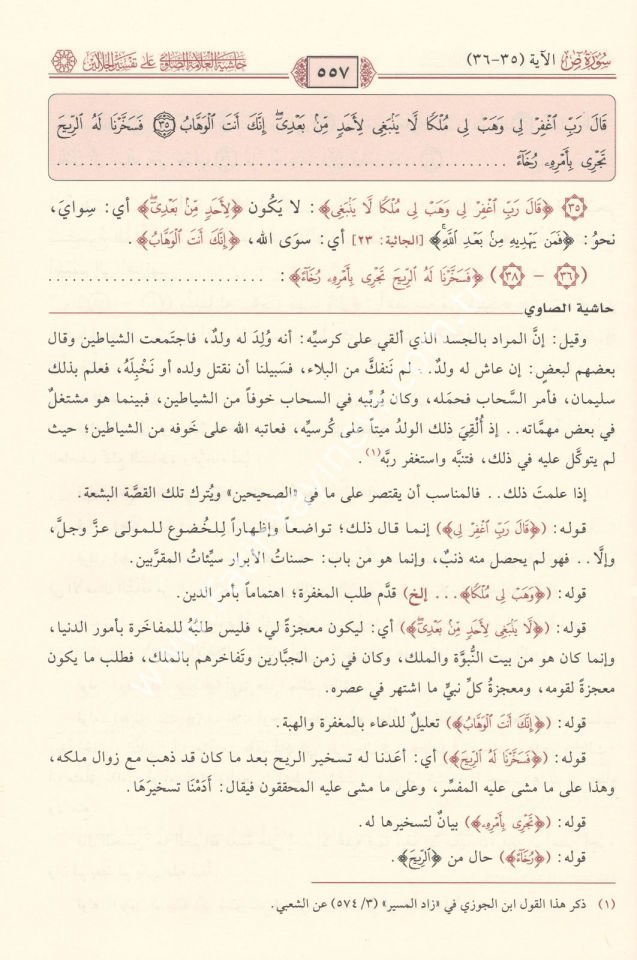 سُورَة صٓ الآية (٣٥-٣٦)
٥٥٧
حاشية العلامة الصاوي على تفسير الجلالين
قَالَ رَبِّ ٱغْفِرْ لِى وَهَبْ لِى مُلْكًا لَّا يَنۢبَغِى لِأَحَدٍ مِّنۢ بَعْدِىٓ إِنَّكَ أَنتَ ٱلْوَهَّابُ ﴿٣٥﴾ فَسَخَّرْنَا لَهُ ٱلرِّيحَ
تَجْرِى بِأَمْرِهِۦ رُخَآءً ............................................................
﴿٣٥﴾ ﴿قَالَ رَبِّ ٱغْفِرْ لِى وَهَبْ لِى مُلْكًا لَّا يَنۢبَغِى﴾: لا يَكُون ﴿لِأَحَدٍ مِّنۢ بَعْدِىٓ﴾ أي: سِوايَ،
نحوُ: ﴿فَمَن يَهْدِيهِ مِنۢ بَعْدِ ٱللَّهِ﴾ [الجاثية: ٢٣] أي: سوَى الله، ﴿إِنَّكَ أَنتَ ٱلْوَهَّابُ﴾.
(﴿٣٦﴾ - ﴿٣٨﴾) ﴿فَسَخَّرْنَا لَهُ ٱلرِّيحَ تَجْرِى بِأَمْرِهِۦ رُخَآءً﴾: ............................
حاشية الصاوي
وقيل: إنَّ المراد بالجسد الذي ألقي على كرسيِّه: أنه وُلِدَ له ولدٌ، فاجتَمعت الشياطين وقال
بعضهم لبعضٍ: إن عاش له ولدٌ.. لم نَنفكَّ من البلاء، فسَبيلنا أن نقتل ولده أو نَخْبِلَهُ، فعلم بذلك
سليمان، فأمر السَّحاب فحمَله، وكان يُربِّيه في السحاب خوفاً من الشياطين، فبينما هو مشتغلٌ
في بعض مهمَّاته.. إذ أُلْقِيَ ذلك الولدُ ميتاً على كُرسيِّه، فعاتبه الله على خَوفه من الشياطين؛ حيث
لم يتوكَّل عليه في ذلك، فتنبَّه واستغفر ربَّه(١).
إذا علمتَ ذلك.. فالمناسب أن يقتصر على ما في «الصحيحين» ويُترك تلك القصَّة البشعة.
قوله: (﴿قَالَ رَبِّ ٱغْفِرْ لِى﴾) إنما قال ذلك؛ تواضعاً وإظهاراً لِلخُضوع للمولى عزَّ وجلَّ،
وإلَّا.. فهو لم يحصل منه ذنبٌ، وإنما هو من باب: حسناتُ الأبرار سيِّئاتُ المقرَّبين.
قوله: (﴿وَهَبْ لِى مُلْكًا﴾... إلخ) قدَّم طلب المغفرة؛ اهتماماً بأمر الدين.
قوله: (﴿لَّا يَنۢبَغِى لِأَحَدٍ مِّنۢ بَعْدِىٓ﴾) أي: ليكون معجزةً لي، فليس طلبُهُ للمفاخَرة بأمور الدنيا،
وإنما كان هو من بيت النُّبوَّة والملك، وكان في زمن الجبَّارين وتَفاخرهم بالملك، فطلب ما يكون
معجزةً لقومه، ومعجزةُ كلِّ نبيٍّ ما اشتهر في عصره.
قوله: (﴿إِنَّكَ أَنتَ ٱلْوَهَّابُ﴾) تعليلٌ للدعاء بالمغفرة والهبة.
قوله: (﴿فَسَخَّرْنَا لَهُ ٱلرِّيحَ﴾) أي: أعَدنا له تسخير الريح بعد ما كان قد ذهب مع زوال ملكه،
وهذا على ما مشى عليه المفسِّر، وعلى ما مشى عليه المحققون فيقال: أَدَمْنَا تسخيرَهَا.
قوله: (﴿تَجْرِى بِأَمْرِهِۦ﴾) بيانٌ لتسخيرها له.
قوله: (﴿رُخَآءً﴾) حال من ﴿ٱلرِّيحَ﴾.
(١) ذكر هذا القول ابن الجوزي في «زاد المسير» (٥٧٤/٣) عن الشعبي.